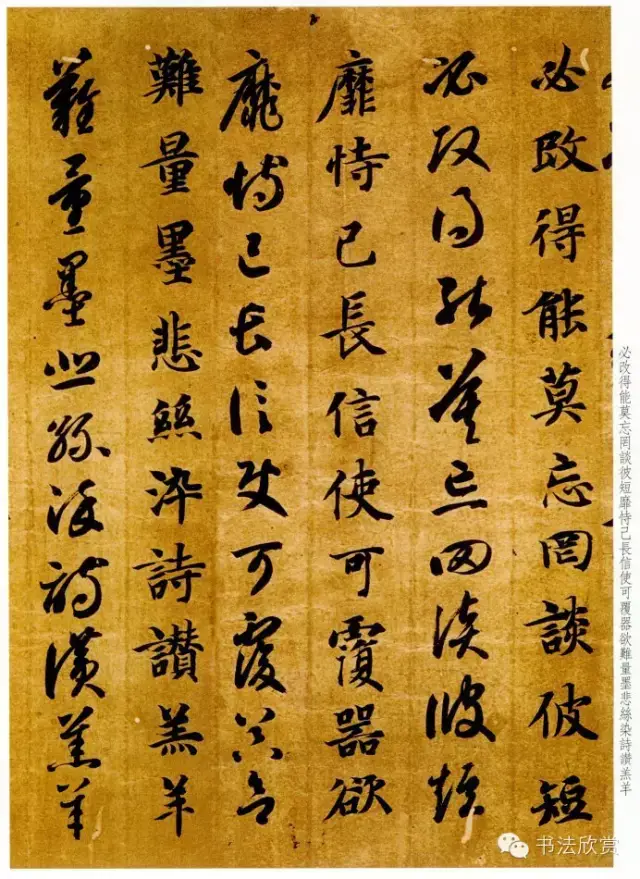 必改得能莫忘罔談彼短靡恃己長信使可覆器欲難量墨悲絲染詩讚羔羊
必改得能莫忘罔談彼短
必改得能莫忘罔談彼短
靡恃己長信使可覆器欲
靡恃己長信使可覆器欲
難量墨悲絲染詩讚羔羊
難量墨悲絲染詩讚羔羊
书法欣赏